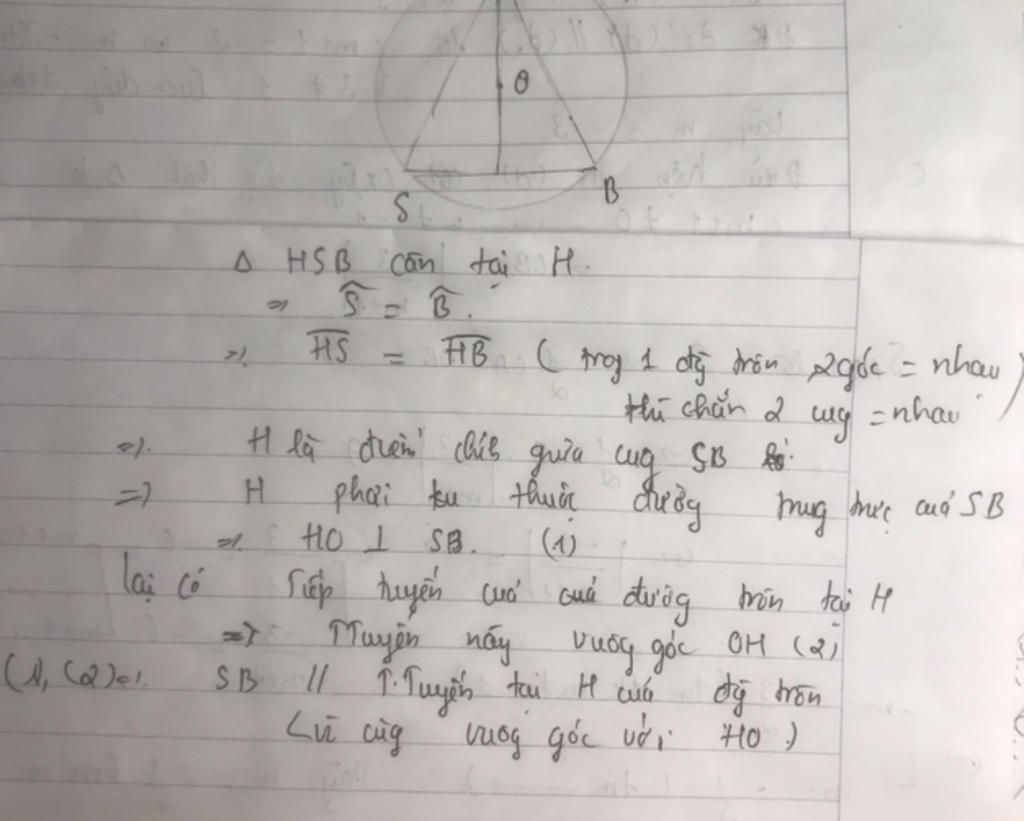 O
S
B
Δ HSB cân tại H.
=> Ŝ = B̂.
=> HS = HB (trog 1 đg tròn 2góc = nhau)
thì chắn 2 cug = nhau
=> H là điểm chíh giữa cug SB
=> H phải thuộc đườg trug trực của SB
=> HO ⊥ SB. (1)
lại có Tiếp tuyến của của đườg tròn tại H
=> TTuyến này vuôg góc OH (2)
(1), (2) => SB // T.Tuyến tại H của đg tròn
(vì cùg vuôg góc với HO)